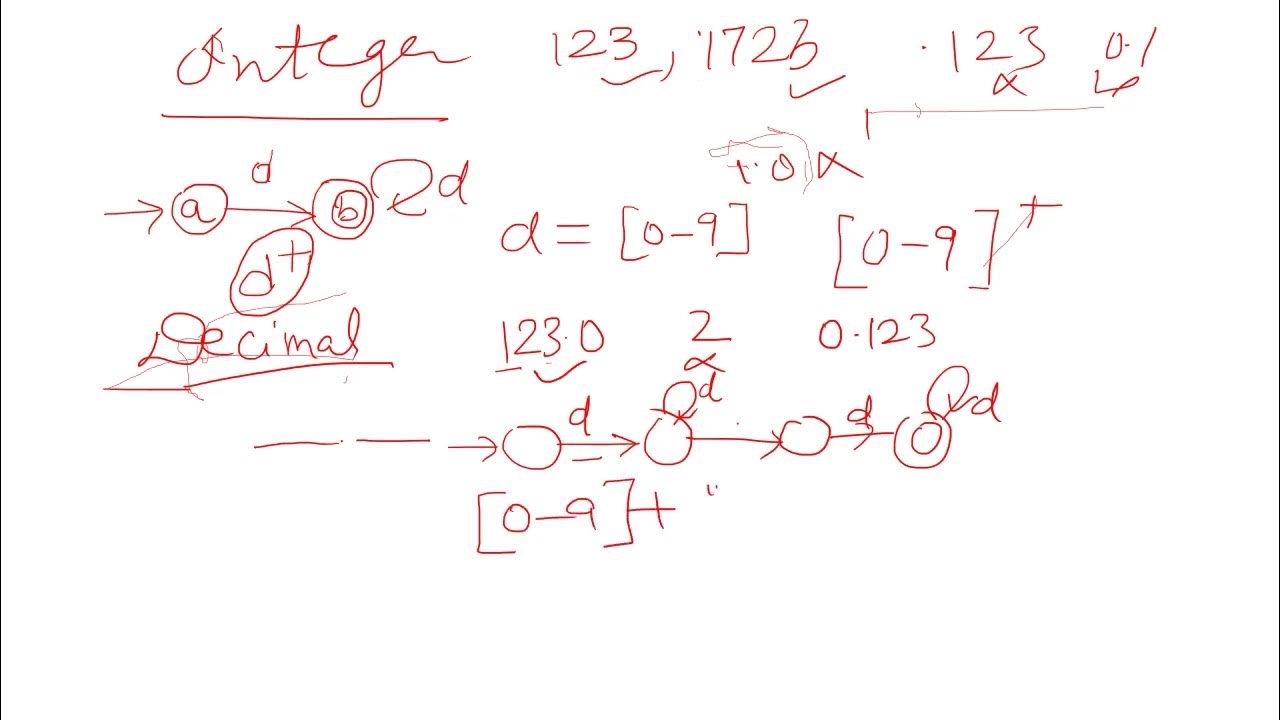 Integer 123, 1723 .123 0.1
+.0
d
a b d
d = [0-9] [0-9]+
d+
Decimal 123.0 2 0.123
d d . d d
[0-9]+ "